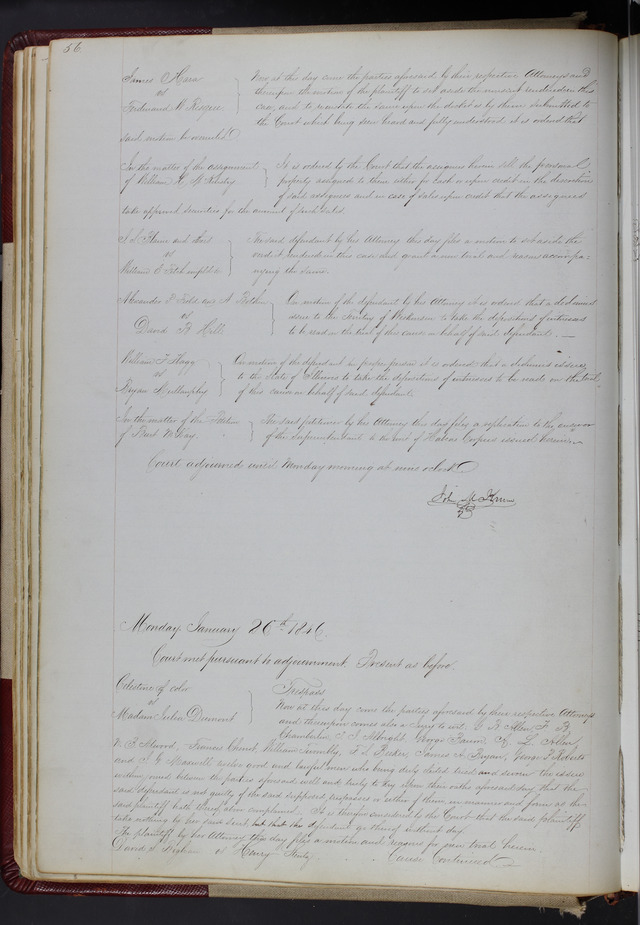 56
James
vs
Ferdinand W. Risque
Now at this day come the parties aforesaid by their respective Attorneys and
thereupon the motion of the plaintiff to set aside the nonsuit rendered in this
case, and to reinstate the same upon the docket is by them submitted to
the Court which being seen heard and fully understood it is ordered that
said motion be overruled
In the matter of the Assignment
of William
It is ordered by the Court that the assignees herein sell the personal
property assigned to them either for Cash or upon credit in the discretion
of said assignees and in case of sales upon credit that the assignees
take approved securities for the amount of such sales.
vs
William
The said defendant by his Attorney this day files a motion to set aside the
verdict rendered in this case and grant a new trial and reasons accompa-
nying the same.
Alexander
vs
David
On motion of the defendant by his Attorney it is ordered that a dedimus
issue to the Territory of Wisconsin to take the depositions of witnesses
to be read on the trial of this cause in behalf of said defendant. —
William T.
vs
Bryan Mullanphy
On motion of the defendant in proper person it is ordered that a dedimus issue
to the State of Illinois to take the depositions of witnesses to be read on the trial
of this cause on behalf of said defendant.
In the matter of the Petition
of Paul
The said petitioner by his Attorney this day files a replication to the answer
of the Superintendent to the writ of Habeas Corpus issued herein
Court adjourned until Monday morning at nine o'clock
John M. Krum
Monday January 26th 1846.
Court met pursuant to adjournment. Present as before.
Celestine of color
vs
Madam Julia Dumont
Trespass
Now at this day come the parties aforesaid by their respective Attorneys
and thereupon comes also a Jury to wit.
Chamberlin, Albright, George
Atwood, Francis William James Bryan, George Roberts
and Maxwell twelve good and lawful men who being duly elected tried and sworn the issue
within joined between the parties aforesaid well and truly to try upon their oaths aforesaid say that the
said defendant is not guilty of the said supposed trespasses or either of them in manner and form as the
said plaintiff hath thereof above complained. It is therefore considered by the Court that the said plaintiff
take nothing by her said suit but that the defendant go thereof without day.
The plaintiff by her Attorney this day files a motion and reasons for new trial herein.
David vs Henry
Cause Continued